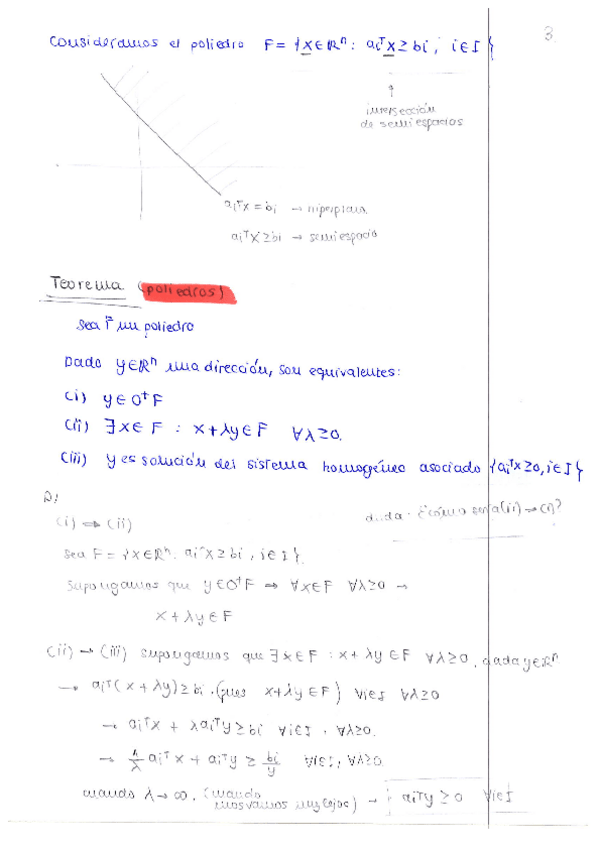 3
Consideramos el poliedro F = {x ∈ ℝⁿ : aᵢᵀx ≥ bᵢ, i ∈ I}
↑
intersección
de semiespacios
aᵢᵀx = bᵢ → hiperplano
aᵢᵀx ≥ bᵢ → semiespacio
Teorema (poliedros)
Sea F un poliedro
Dado y ∈ ℝⁿ una dirección, son equivalentes:
(i) y ∈ 0⁺F
(ii) ∃x ∈ F : x + λy ∈ F ∀λ ≥ 0.
(iii) y es solución del sistema homogéneo asociado {aᵢᵀx ≥ 0, i ∈ I}
D/
duda: ¿cómo sería (ii) → (i)?
(i) ⇒ (ii)
Sea F = {x ∈ ℝⁿ : aᵢᵀx ≥ bᵢ, i ∈ I}.
Supongamos que y ∈ 0⁺F ⇒ ∀x ∈ F ∀λ ≥ 0 →
x + λy ∈ F
(ii) → (iii) supongamos que ∃x ∈ F : x + λy ∈ F ∀λ ≥ 0, dada y ∈ ℝⁿ
→ aᵢᵀ(x + λy) ≥ bᵢ (pues x + λy ∈ F) ∀i ∈ I ∀λ ≥ 0
→ aᵢᵀx + λaᵢᵀy ≥ bᵢ ∀i ∈ I, ∀λ ≥ 0.
→ 1/λ aᵢᵀx + aᵢᵀy ≥ bᵢ/y ∀i ∈ I, ∀λ ≥ 0
cuando λ → ∞. (cuando nos vamos muy lejos) → aᵢᵀy ≥ 0 ∀i ∈ I